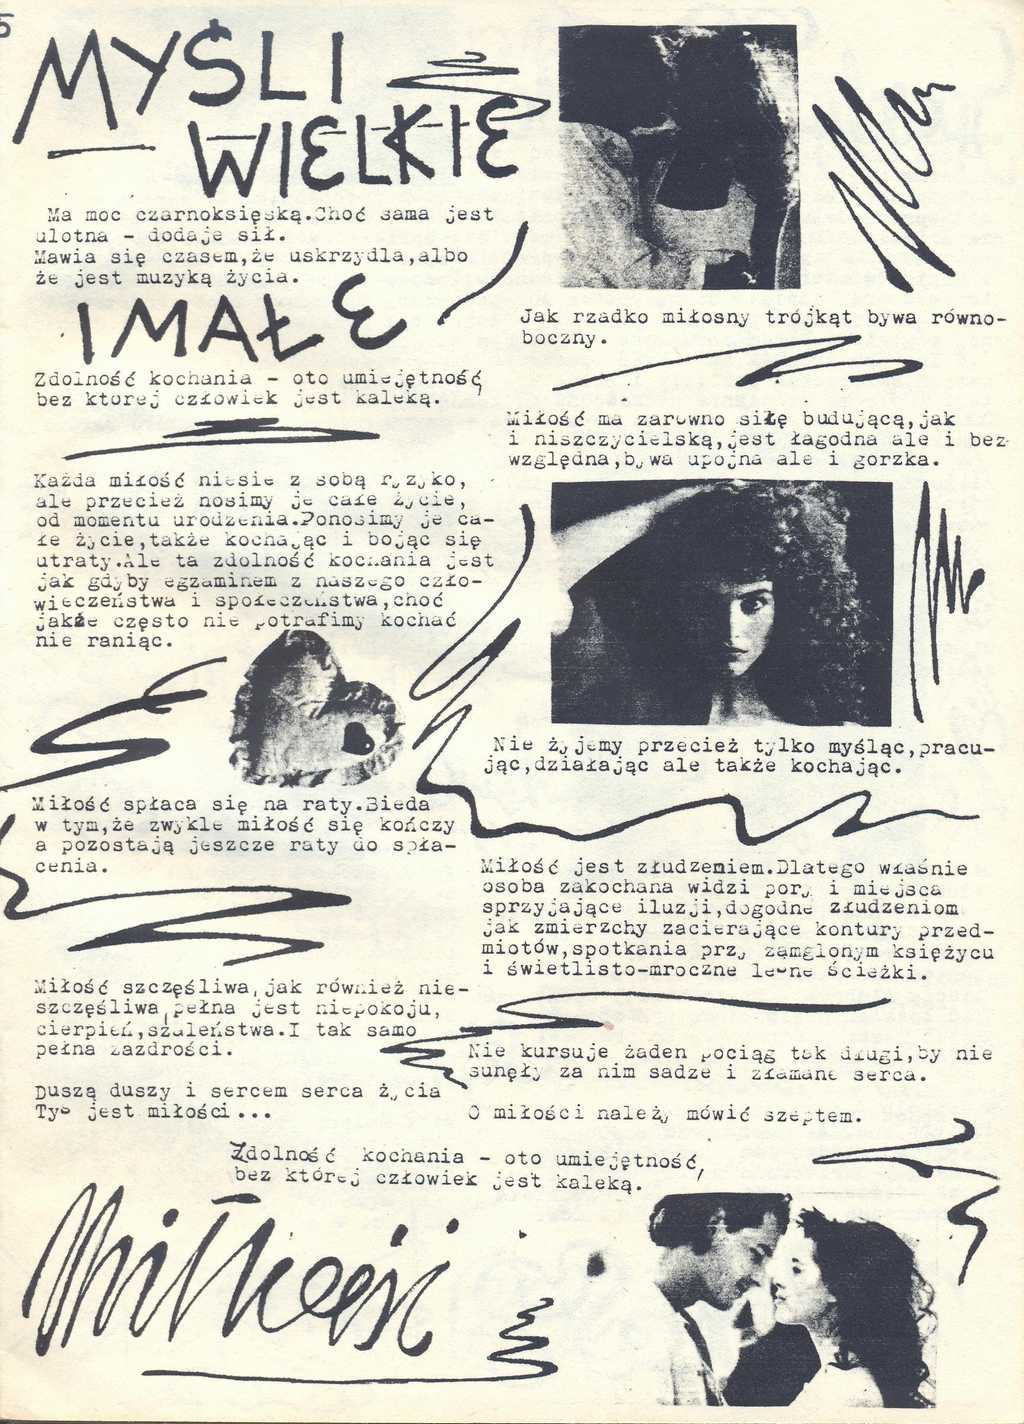 5
MYŚLI
WIELKIE
Ma moc czarnoksięską.Choć sama jest
ulotna - dodaje sił.
Mawia się czasem,że uskrzydla,albo
że jest muzyką życia.
I MAŁE
Zdolność kochania - oto umiejętność,
bez ktorej człowiek jest kaleką.
Każda miłość niesie z sobą ryzyko,
ale przecież nosimy je całe życie,
od momentu urodzenia.Ponosimy je ca-
łe życie,także kochając i bojąc się
utraty.Ale ta zdolność kochania jest
jak gdyby egzaminem z naszego czło-
wieczeństwa i społeczeństwa,choć
jakże często nie potrafimy kochać
nie raniąc.
Miłość spłaca się na raty.Bieda
w tym,że zwykle miłość się kończy
a pozostają jeszcze raty do spła-
cenia.
Miłość szczęśliwa,jak również nie-
szczęśliwa,pełna jest niepokoju,
cierpień,szaleństwa.I tak samo
pełna zazdrości.
Duszą duszy i sercem serca życia
Tyś jest miłości...
Jak rzadko miłosny trójkąt bywa równo-
boczny.
Miłość ma zarówno siłę budującą,jak
i niszczycielską,jest łagodna ale i bez-
względna,bywa upojna ale i gorzka.
Nie żyjemy przecież tylko myśląc,pracu-
jąc,działając ale także kochając.
Miłość jest złudzeniem.Dlatego właśnie
osoba zakochana widzi pory i miejsca
sprzyjające iluzji,dogodne złudzeniom
jak zmierzchy zacierające kontury przed-
miotów,spotkania przy zamglonym księżycu
i świetlisto-mroczne leśne ścieżki.
Nie kursuje żaden pociąg tak długi,by nie
sunęły za nim sadze i złamane serca.
O miłości należy mówić szeptem.
Zdolność kochania - oto umiejętność,
bez której człowiek jest kaleką.